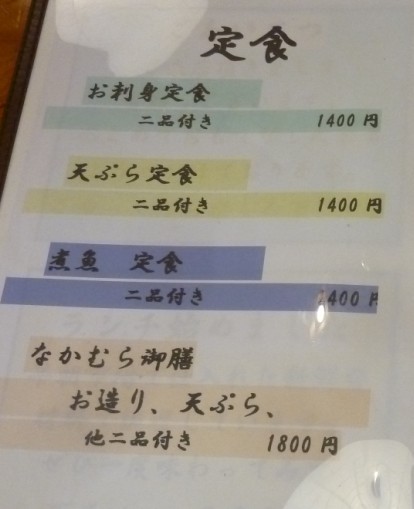 定食
お刺身定食
二品付き 1400円
天ぷら定食
二品付き 1400円
煮魚 定食
二品付き 1400円
なかむら御膳
お造り、天ぷら、
他二品付き 1800円